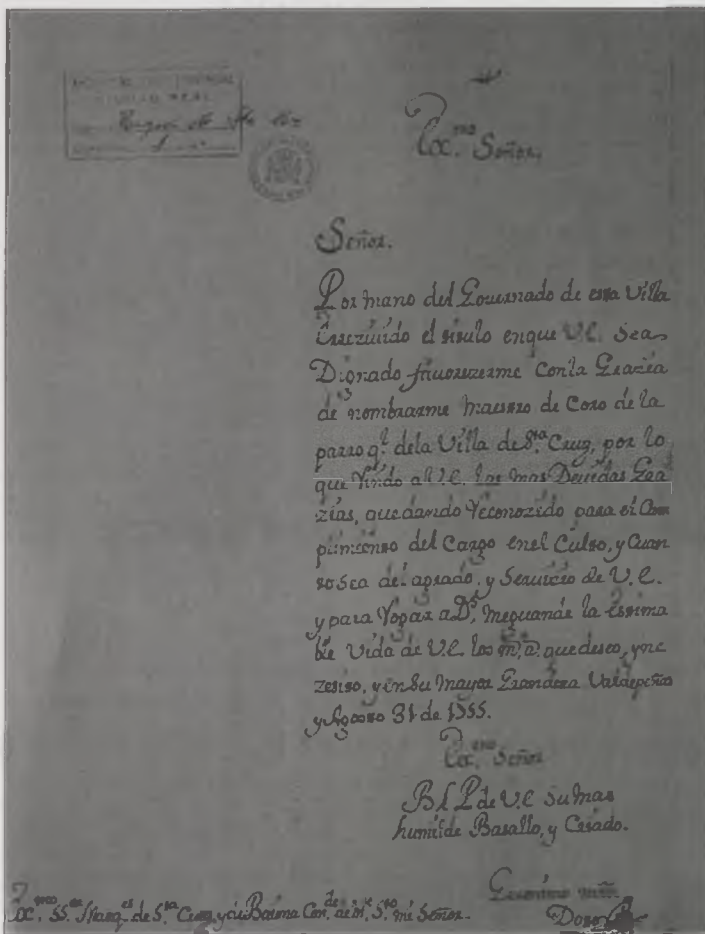 Exc.mo Señor,
Señor.
Por mano del Governado de essa Villa
herezivido el titulo enque V.E. sea
Dignado favorezerme conla Grazia
de nombrarme Maestro de Coro de la
parroq.l dela Villa de S.ta Cruz, por lo
que Rindo a V.E. las mas Devidas Gra
zias, quedando Reconozido para el Cum
plimiento del Cargo enel Culto, y Cuan
to Sea del agrado, y Servicio de V.E.
y para Rogar a D.s Meguarde la Estima
ble Vida de V.E. los m.s a.s que deseo, yne
zesito, y en Su Mayor Grandeza Valdepeñas
y Agosto 31 de 1755.
Exc.mo Señor
B L P de V.E Su mas
humilde Basallo, y Criado.
Geronimo
Exc.mo SS.or Marq.es de S.ta Cruz, mi Señor.